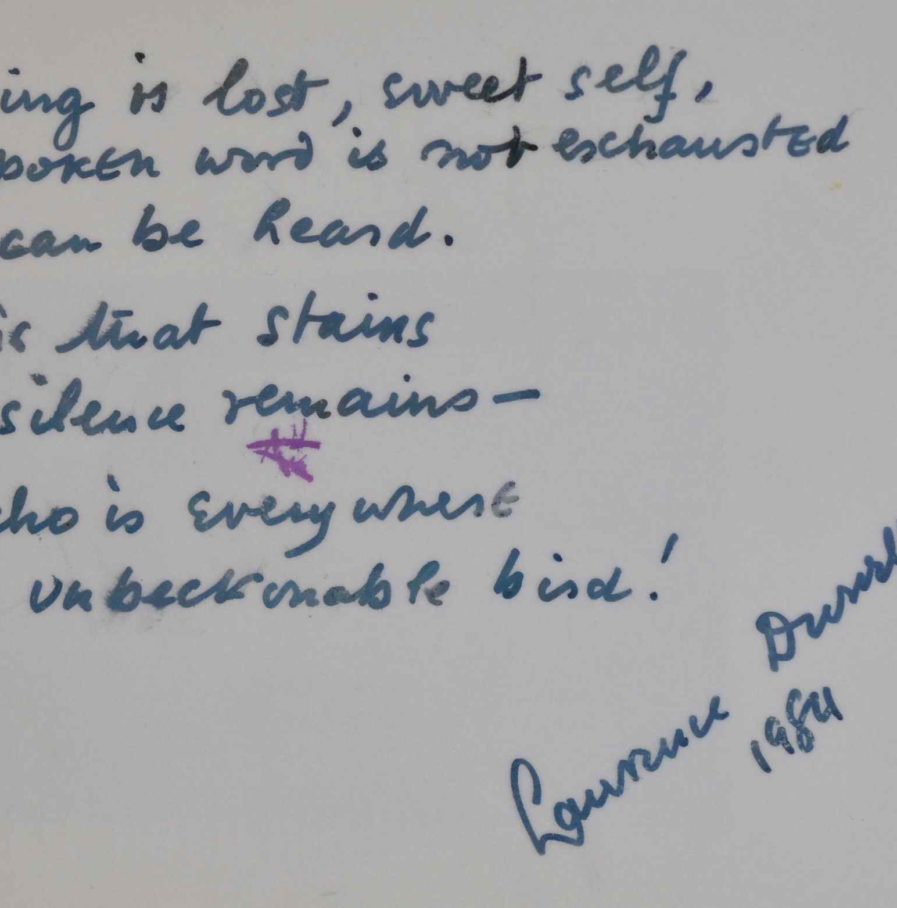 ing is lost, sweet self,
poken word is not exhausted
can be heard.
that stains
silence remains—
cho is everywhere
unbeckonable bird!
Lawrence Durrell
1984